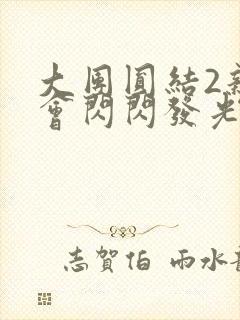 大團圓結2
會閃閃發光
志賀伯 雨水